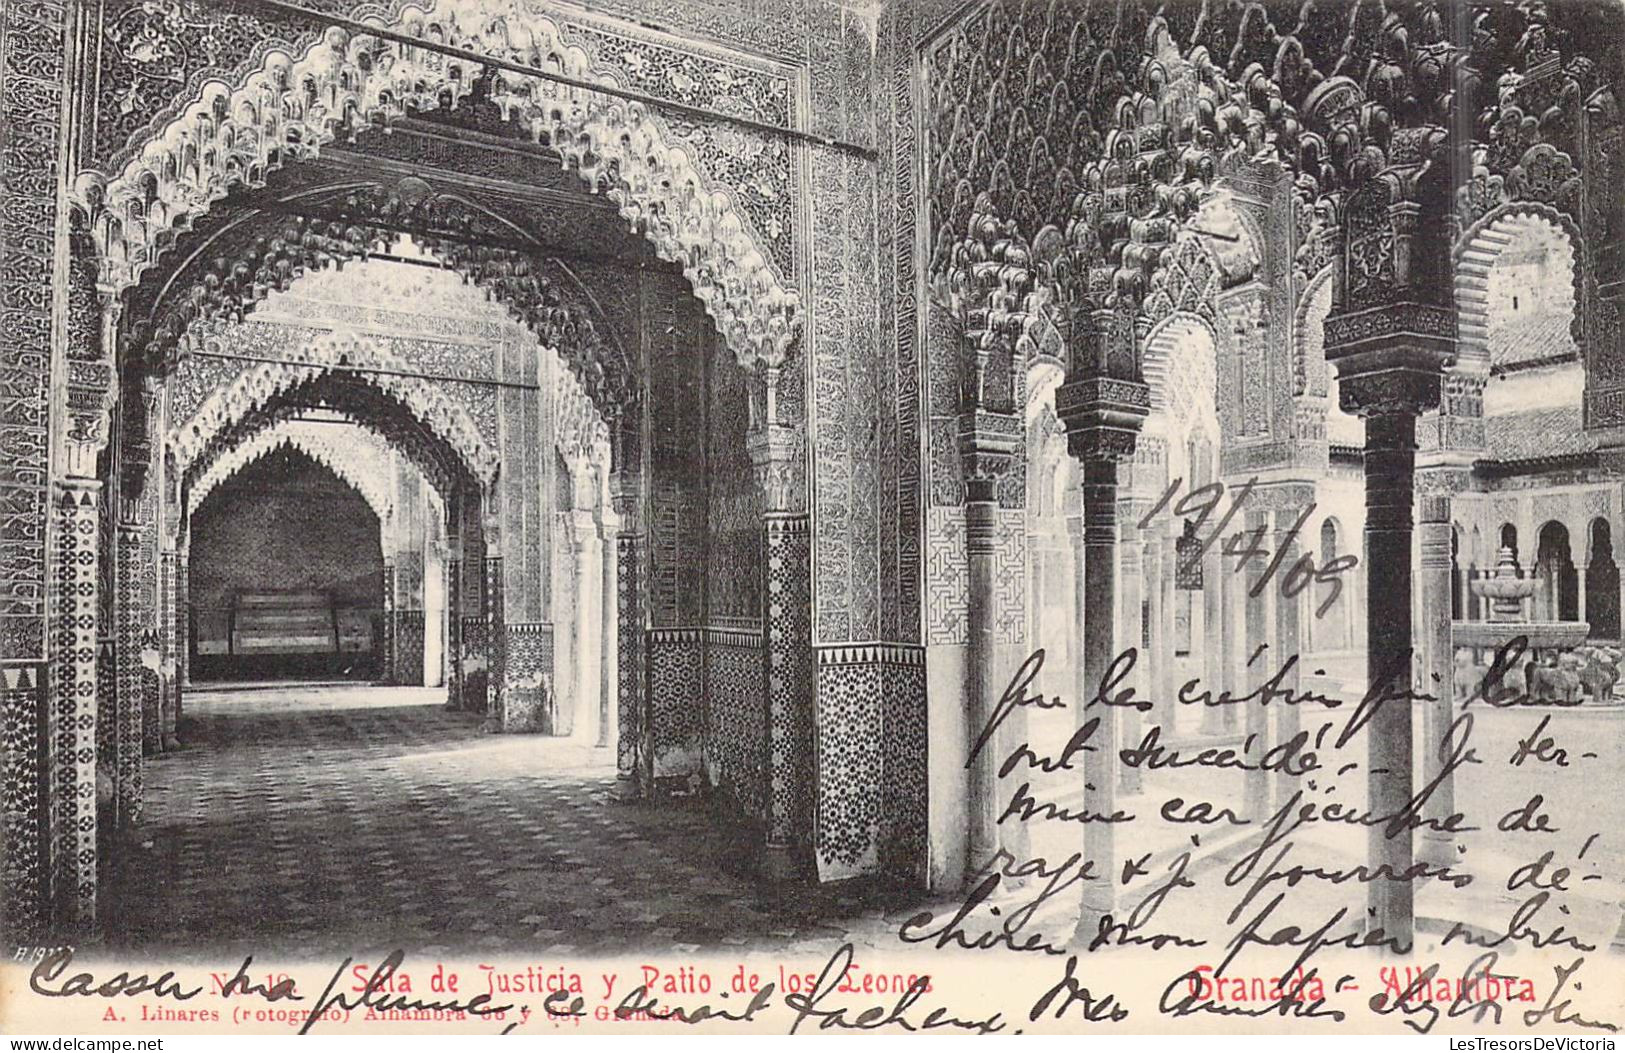 19/4/09
que les crétins qui leur
ont succédé. Je ter-
mine car j'écume de
rage & je pourrais dé-
chirer mon papier ou bien
casser ma plume, ce serait fâcheux.
No. 19. Sala de Justicia y Patio de los Leones
Granada - Alhambra
A. Linares (fotografo) Alhambra 66 y 68, Granada
LesTresorsDeVictoria